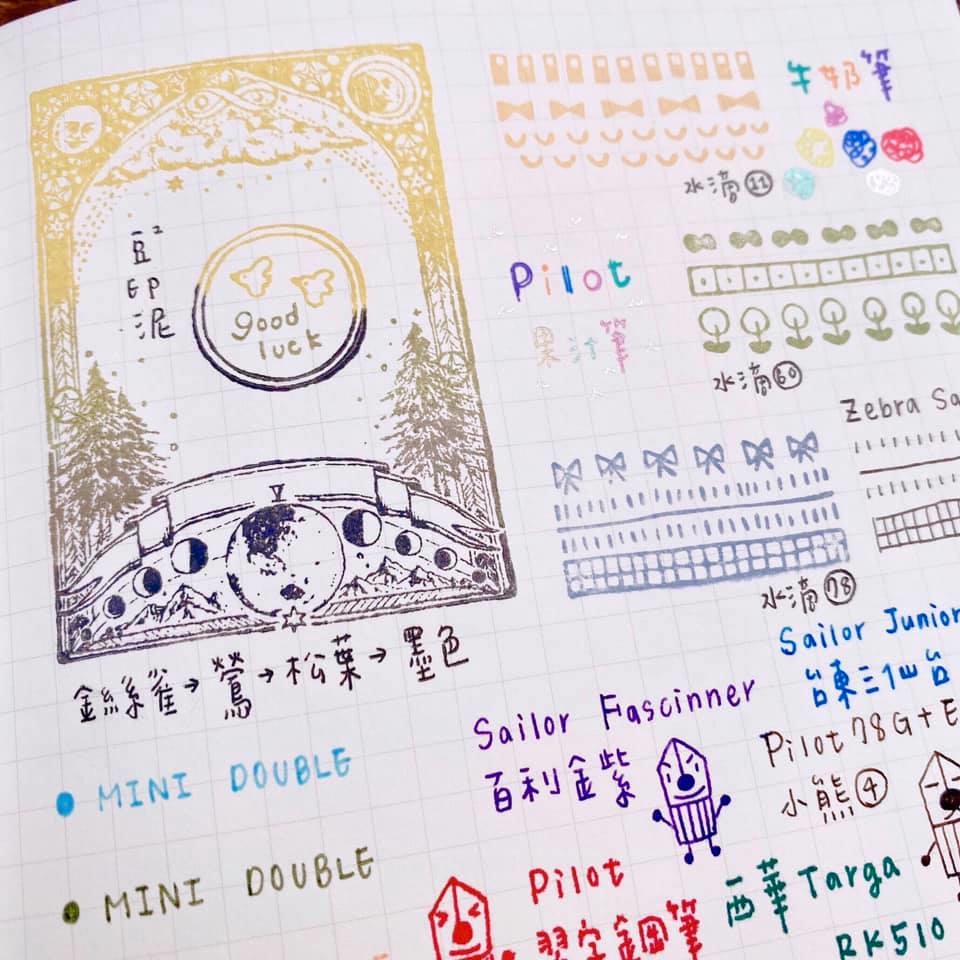 豆²
印
泥
good
luck
金絲雀→鶯→松葉→墨色
MINI DOUBLE
MINI DOUBLE
牛奶筆
水滴⑪
Pilot
果汁筆
水滴60
Zebra Sa
水滴78
Sailor Junior
台東三仙台
Sailor Fascinner
百利金紫
Pilot 78G+E
小熊④
Pilot
習字鋼筆
西華 Targa
RK510